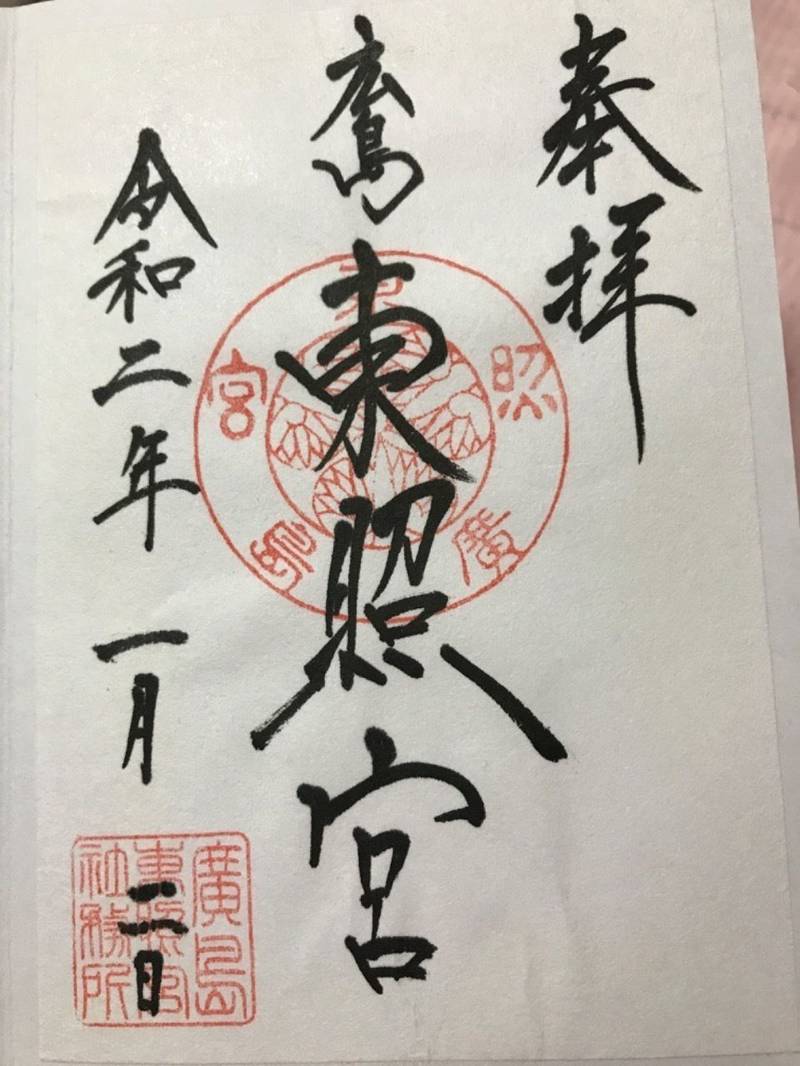 奉拝
広島 東照宮
令和二年 一月 二日
廣島東照宮
廣島
東照宮
社務所